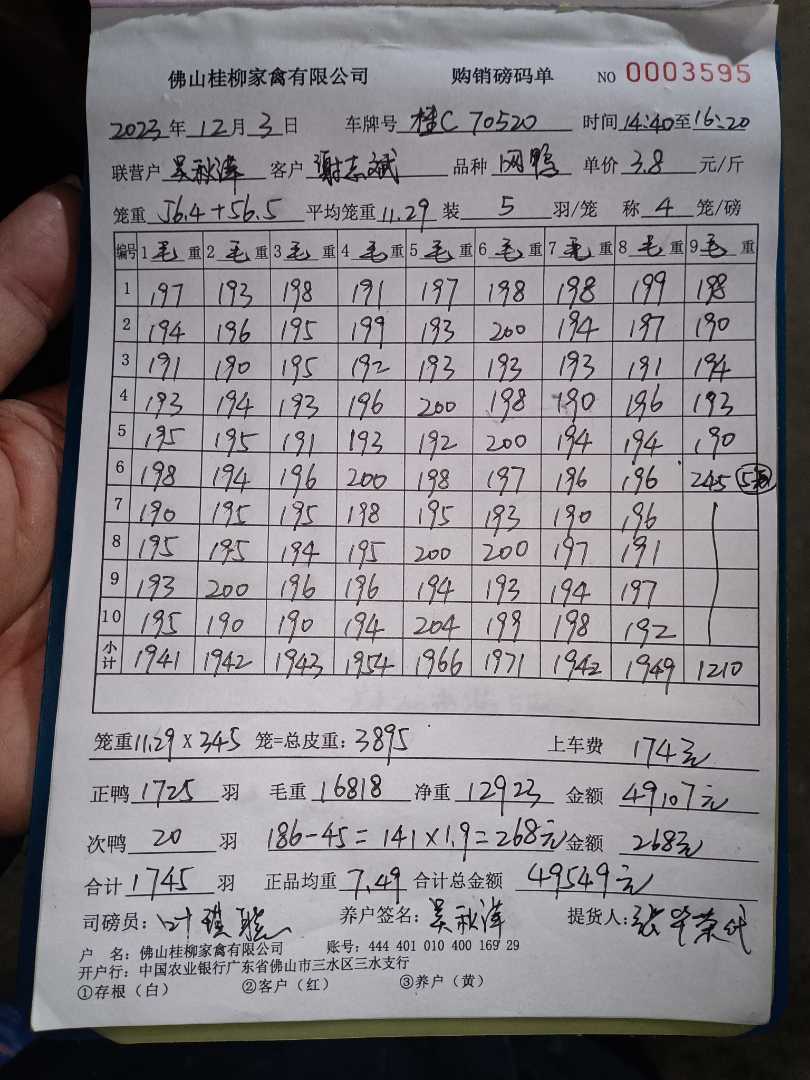 佛山桂柳家禽有限公司 购销磅码单 NO 0003595
2023年12月3日 车牌号 桂C 70520 时间14:40至16:20
联营户 吴秋萍 客户 谢志斌 品种 网鸭 单价 3.8 元/斤
笼重 56.4+56.5 平均笼重11.29 装 5 羽/笼 称 4 笼/磅
编号 1毛重 2毛重 3毛重 4毛重 5毛重 6毛重 7毛重 8毛重 9毛重
1 197 193 198 191 197 198 198 199 198
2 194 196 195 199 193 200 194 197 190
3 191 190 195 192 193 193 193 191 194
4 193 194 193 196 200 198 190 196 193
5 195 195 191 193 192 200 194 194 190
6 198 194 196 200 198 197 196 196 245
7 190 195 195 198 195 193 190 196
8 195 195 194 195 200 200 197 191
9 193 200 196 196 194 193 194 197
10 195 190 190 194 204 199 198 192
小计 1941 1942 1943 1954 1966 1971 1942 1949 1210
笼重11.29 X 345 笼=总皮重: 3895 上车费 174元
正鸭 1725 羽 毛重 16818 净重 12923 金额 49107元
次鸭 20 羽 186-45=141×1.9=268元 金额 268元
合计 1745 羽 正品均重 7.49 合计总金额 49549元
司磅员: 叶 养户签名: 吴秋萍 提货人: 张
户 名: 佛山桂柳家禽有限公司 账号: 444 401 010 400 169 29
开户行: 中国农业银行广东省佛山市三水区三水支行
①存根(白) ②客户(红) ③养户(黄)